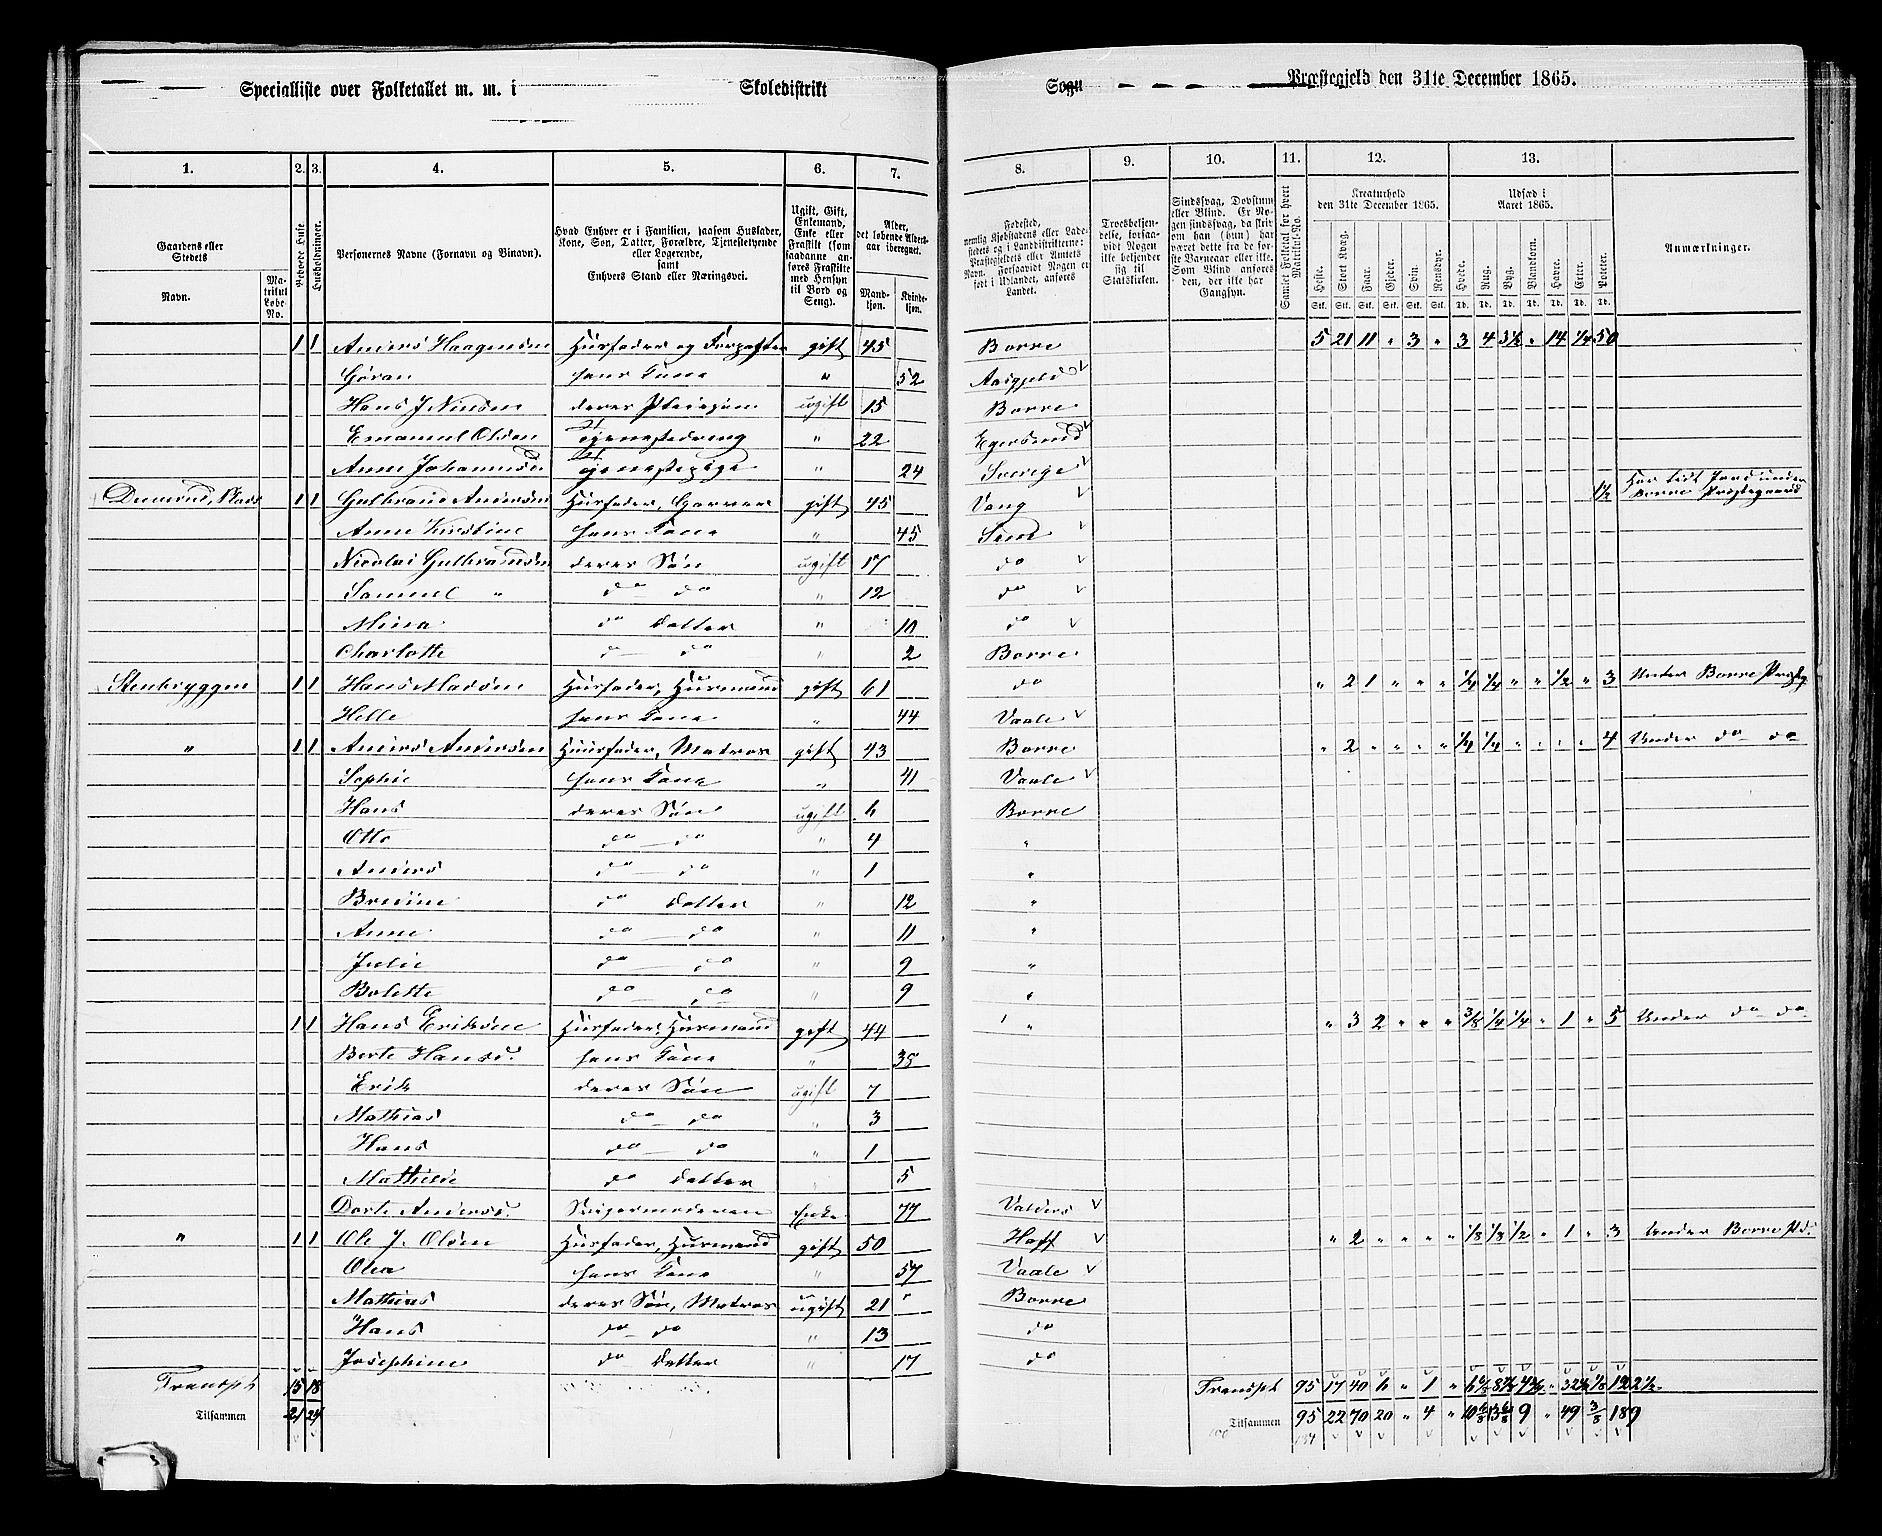 Specialliste over Folketallet m. m. i Skoledistrikt Sogn Præstegjeld den 31te December 1865.
1. 2. 3. 4. 5. 6. 7. 8. 9. 10. 11. 12. 13.
Gaardens eller Stedets
Navn.
Matrikul Løbe-No.
Beboede Huse
Husholdninger.
Personernes Navne (Fornavn og Tilnavn).
Hvad Enhver er i Familien, saasom Husfader, Kone, Søn, Datter, Forældre, Tjenestetyende eller Logerende, samt Enhvers Stand eller Næringsvei.
Ugift, Gift, Enkemand, Enke eller Fraskilt (som saadanne anføres Fraskilte med Hensyn til Bord og Seng).
Alder, det løbende Alders-aar iberegnet.
Mandkjøn.
Kvindekjøn.
Fødested,
Troesbekjendelse, forsaavidt Nogen ikke bekjender sig til Statskirken.
Sindssvag, Døvstum eller Blind.
Kreaturhold den 31te December 1865.
Udsæd i Aaret 1865.
Anmærkninger.
Heste. Stort Kvæg. Faar. Gjeder. Svin. Rensdyr. Hvede. Rug. Byg. Blandkorn. Havre. Erter. Poteter.
1 1 Anders Haagensen Husfader og Forpagter gift 45 Borre 5 21 11 " 3 " 3 4 3½ " 14 ¼ 50
Gøran hans Kone " 52 Aasgjeld
Hans J Nilsen deres Pleiesøn ugift 15 Borre
Emanuel Olsen Tjenestedreng " 22 Egersund
Anne Johannesd Tjenestepige " 24 Sverige
1 1 Gulbrand Andersen Husfader, Garver gift 45 Vang 1½ Har lidt Jord under Borre Præstegaard
Anne Kirstine hans Kone " 45 Sem
Nicolai Gulbrandsen deres Søn ugift 17 do
Samuel " do do " 12 do
Mina do Datter " 10 do
Charlotte do do " 2 Borre
Stenbryggen 1 1 Hans Madsen Husfader, Husmand gift 61 do " 2 1 " " " ¼ ¼ " " ½ " 3 Under Borre Præsteg
Helle hans Kone " 44 Vaale
" 1 1 Anders Andersen Huusfader, Matros gift 43 Borre " 2 " " " " ¼ ¼ " " " " 4 Under do do
Sophie hans Kone " 41 Vaale
Hans deres Søn ugift 6 Borre
Otto do do " 4 "
Anders do do " 1 "
do Datter " 12 "
Anne do do " 11 "
Julie do do " 9 "
Bolette do do " 9 "
1 1 Hans Eriksen Husfader, Husmand gift 44 " " 3 2 " " " 3/8 ¼ ¼ " 1 " 5 Under do do
Berte Hansd. hans Kone " 35
Erik deres Søn ugift 7
Mathias do do " 3
Hans do do " 1
Mathilde do Datter " 5
Dorte Andersd. Svigermoderen Enke 77 Valders
" 1 1 Ole J. Olsen Husfader, Husmand gift 50 Hoff " 2 " " " " 1/8 1/8 ½ " 1 " 3 Under Borre Pd.
Olea hans Kone " 57 Vaale
Mathias deres Søn, Matros ugift 21 " Borre
Hans do do " 13 do
Josephine do Datter " 17 do
Transpt 15 18 Transpt 95 17 40 6 " 1 "
Tilsammen 21 24 Tilsammen 95 22 70 20 " 4 " 9 " 49 3/8 189